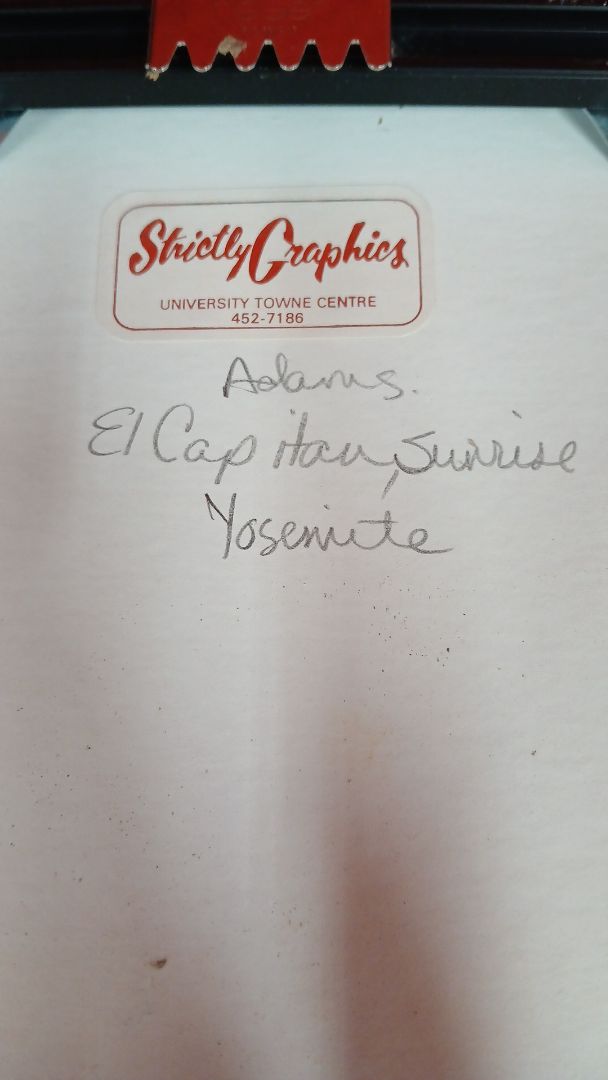 Strictly Graphics
UNIVERSITY TOWNE CENTRE
452-7186
Adams.
El Capitan, Sunrise
Yosemite